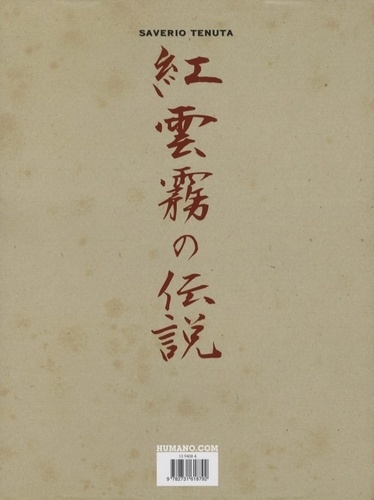 SAVERIO TENUTA
紅雲霧の伝説
HUMANO.COM